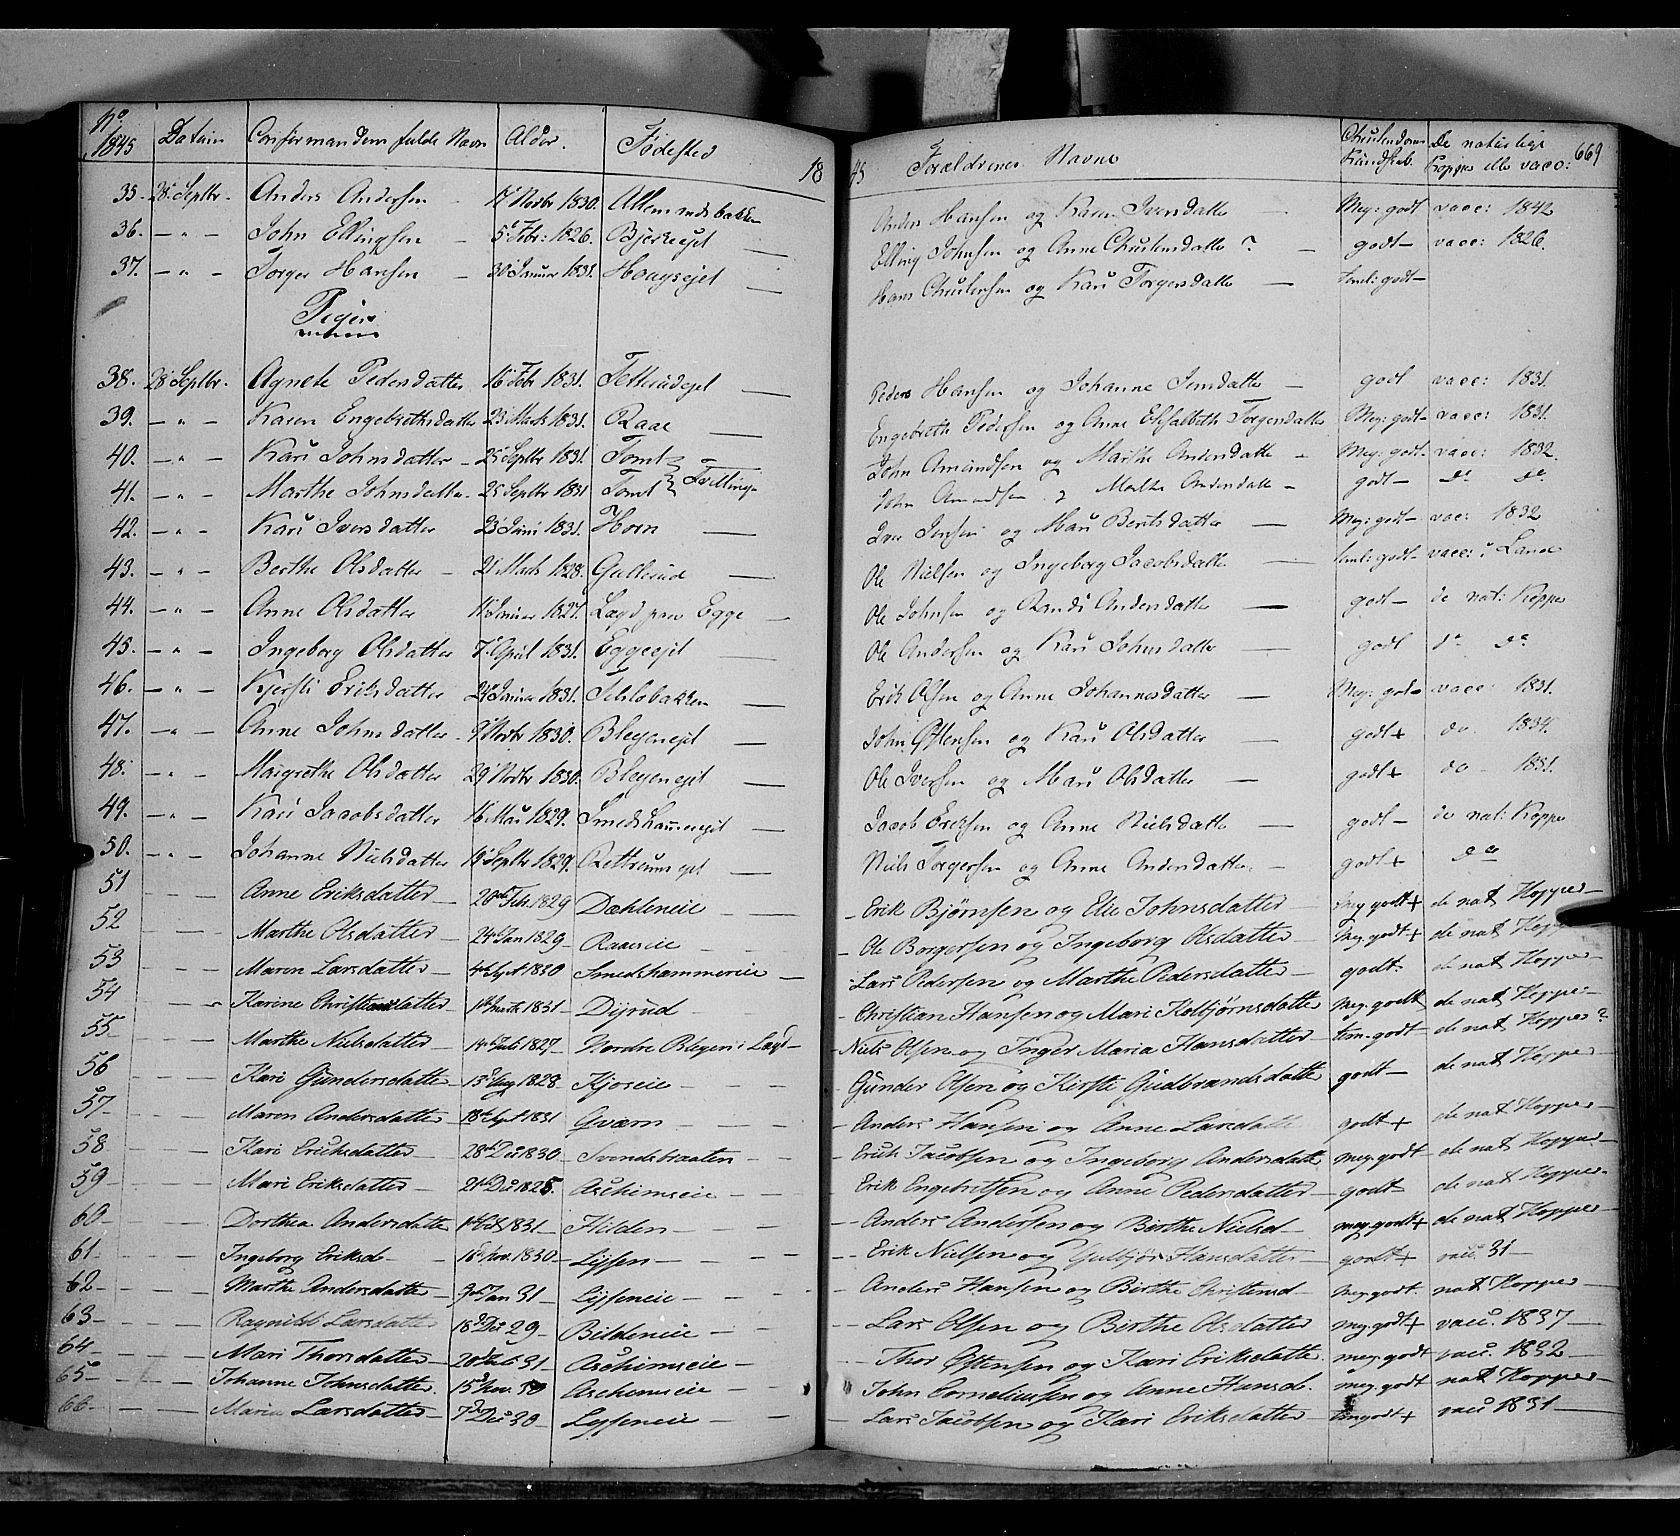 No 1845 Datum Confirmandens fulde Navn Alder. Fødested 18 45 Forældrenes Navne Christendoms Kundskab. De naturlige Kopper eller vacc: 669
35. 28 Septbr. Anders Andersen - Novbr 1830. Allemandsbakken Anders Hansen og Karen Iversdatter — Meg: godt vacc: 1842
36. — " — John Ellingsen - 5 Febr: 1826. Bjerkeejet — Elling Johnsen og Anne Christensdatter ? — godt — vacc: 1826.
37. — " Torger Hansen - 30 Januar 1831. Haugsejet — Hans Christensen og Kari Torgersdatter — teml: godt —
Piger
38. 28 Septbr. Agnete Pedersdatter 16 Febr 1831. Tetterudejet — Peder Hansen og Johanne Jensdatter — godt vacc: 1831.
39. — " — Karen Engebrethsdatter 23 Marts 1831. Raae — Engebreth Pedersen og Anne Elisabeth Torgersdatter Meg: godt — vacc: 1831.
40. — " — Kari Johnsdatter - 25 Septbr 1831. Tomt — John Amundsen og Marthe Andersdatter - Meg: godt. vacc: 1832.
41. — " — Marthe Johnsdatter. 25 Septbr 1831 Tomt Tvillinger John Amundsen og Marthe Andersdatter — godt — do do
42. — " — Kari Iversdatter 23 Juni 1831. Horn — Iver Jensen og Mari Berntsdatter — Meg: godt — vacc: 1832
43. — " — Berthe Olsdatter — 21 Marts 1828. Gullerud — Ole Nielsen og Ingeborg Jacobsdatter teml: godt — vacc: i Land
44. — " — Anne Olsdatter — Januar 1827. Lægd paa Egge — Ole Johnsen og Randi Andersdatter — godt — de nat: Kopper
45. — " — Ingeborg Olsdatter 7 April 1831. Eggeejet — Ole Andersen og Kari Johnsdatter — godt do do
46. — " — Kjersti Eriksdatter Januar 1831. — Erik Olsen og Anne Johannesdatter — Meg: godt vacc: 1831.
47. — " — Anne Johnsdatter. 9 Novbr 1830. Blegenejet — John Ottersen og Kari Olsdatter — godt + do. 1834.
48. — " Margrethe Olsdatter 29 Novbr 1830. Blegenejet — Ole Iversen og Mari Olsdatter — godt + do — 1831.
49. — " — Kari Jacobsdatter 16 Mai 1829. Smedshammerejet — Jacob Eriksen og Anne Nielsdatter — godt — de nat: Kopper
50. — " — Johanne Nielsdatter 15 Septbr 1829. Rettrumsejet — Niels Torgersen og Anne Andersdatter. — godt + do
51 — — Anne Eriksdatter 20de Feb. 1829 Dæhleneie — — Erik Bjørnsen og Elie Johnsdatter — meg godt + de nat Kopper —
52 — — Marthe Olsdatter — 24 Jan 1829 — Raaeseie — Ole Borgersen og Ingeborg Olsdatter — Meg. godt + de nat Kopper
53 — — Maren Larsdatter — Sept 1830 — Smedshammereie — Lars Pedersen og Marthe Pedersdatter — godt. de nat Kopper
54 — — Karine Christiansdatter Marts 1831 — Dyrud — Christian Hansen og Mari Kolbjørnsdatter Meg. godt de nat Kopper —
55 — — Marthe Nielsdatter — 14 Juli 1827 — Nordre Blegen i Lægd — Niels Olsen og Inger Maria Hansdatter tem. godt — de nat Kopper ?
56 — — Kari Gundersdatter — Aug 1828 — Kjoseie — — Gunder Olsen og Kirsti Gudbrandsdatter godt — de nat Kopper
57 — — Maren Andersdatter 18de Sept 1831 Gværn — — Anders Hansen og Anne Larsdatter godt + de nat Kopper —
58 — — Kari Eriksdatter — 28de Dec 1830 — Svendsbraaten — Erik Jacobsen og Ingeborg Andersdatter meg. godt — de nat Kopper —
59 — — Mari Eriksdatter — 21de Dec 1825. Aschimseie — Erik Engebritsen og Anne Pedersdatter — godt — de nat Kopper —
60 — — Dorthea Andersdatter 1831 — Hilden — — Anders Andersen og Berthe Nielsd — meg. godt + de nat Kopper —
61. — — Ingeborg Eriksd — 16 Nov. 1830 — Lyssen — — Erik Nielsen og Gulbjør Hansdatter godt + vacc. 31 —
62 — — Marthe Andersdatter — Jan 31 — Lysseneie — — Anders Hansen og Berthe Christensd — meg. godt. nat Kopper —
63 — — Ragnild Larsdatter 18 Dec 29 — Bildeneie — — Lars Olsen og Berthe Olsdatter — meg. godt + vacc. 1837 —
64 — — Mari Thorsdatter — 20 31 — Aschimseie — Thor Ottersen og Kari Eriksdatter. meg. godt vacc. 1832 —
65 — — Johanne Johnsdatter. 15 Nov. 30 — Aschimseie — John Corneliussen og Anne Hansd. meg. godt nat Kopper —
66 — — Maria Larsdatter — 7de Dec 30 — Lysseneie — Lars Jacobsen og Kari Eriksdatter — tem godt + vacc 1831 —